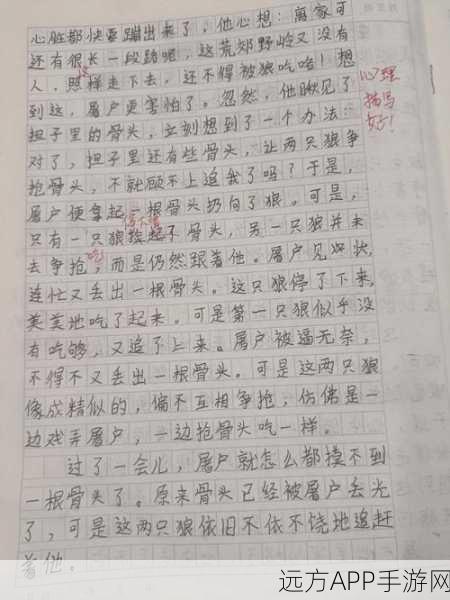 心脏都快要蹦出来了，他心想：离家可
还有很长一段路呢，这荒郊野岭又没有
人，照样走下去，还不得被狼吃啦！想
到这，屠户更害怕了。忽然，他瞅见了
担子里的骨头，立刻想到了一个办法：
对了，担子里还有些骨头，让两只狼争
抢骨头，不就顾不上追我了吗？于是，
屠户便拿起一根骨头扔向了狼。可是，
只有一只狼捡起了骨头，另一只狼并未
去争抢，而是仍然跟着他。屠户见此状，
连忙又丢出一根骨头。这只狼停了下来，
美美地吃了起来。可是第一只狼似乎没
有吃够，又追了上来。屠户被逼无奈，
不得不又丢出一根骨头。可是这两只狼
像成精似的，偏不互相争抢，仿佛是一
边戏弄屠户，一边抢骨头吃一样。
过了一会儿，屠户就怎么都摸不到
一根骨头了。原来骨头已经被屠户丢光
了，可是这两只狼依旧不依不饶地追赶
着他。
心理
描写
好！
远方APP手游网